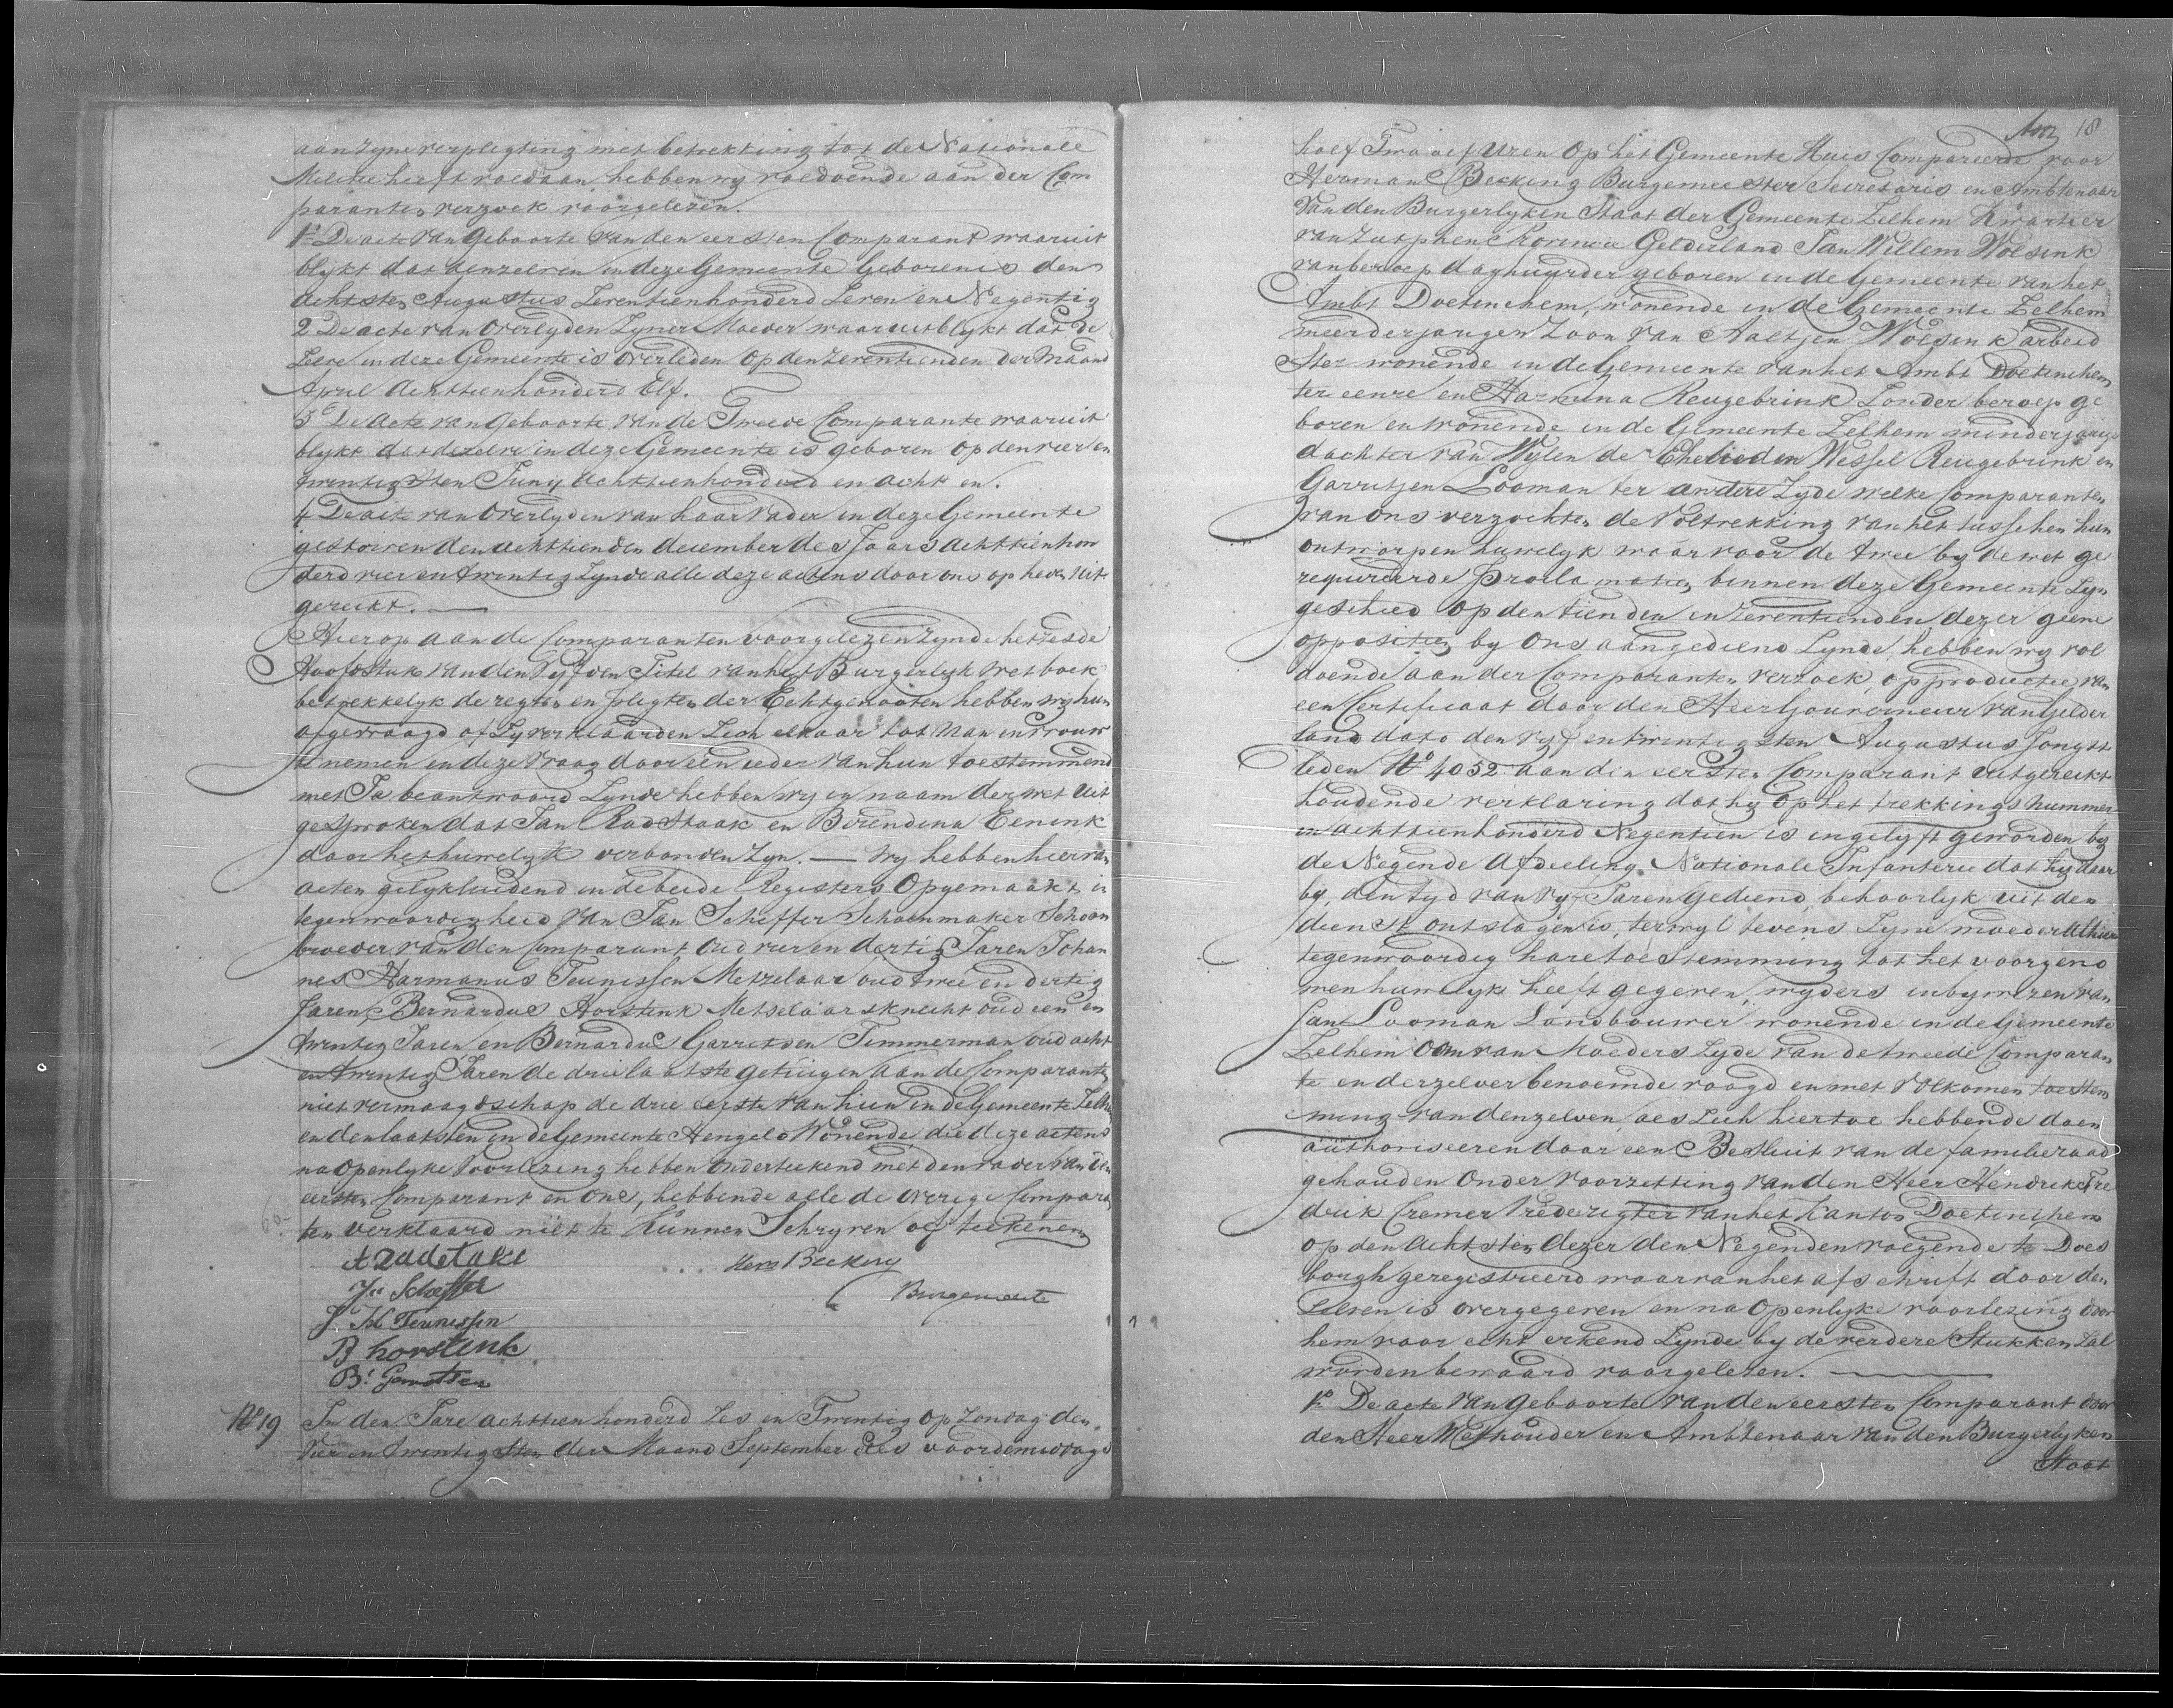 aan zyne verpligting met betrekking tot de Nationale
Militie heeft voldaan, hebben wy voldoende aan der Com
paranten verzoek voorgelezen.
1o De acte van geboorte van den eersten Comparant waaruit
blykt dat denzelven in deze Gemeente Geboren is den
achtsten Augustus Zeventienhonderd Zeven en Negentig
2 De acte van Overlyden Zyner Moeder waaruit blykt dat de
Zelve in deze Gemeente is overleden op den Zeventienden der Maand
April Achttienhonderd Elf.
3 De acte van geboorte van de Tweede Comparante waaruit
blykt dat dezelve in deze Gemeente is geboren op den vier en
twintigsten Juny achttienhonderd en acht en.
4 De acte van Overlyden van haar vader in deze Gemeente
gestorven den achttienden december des Jaars achttienhon
derd vier en twintig Zynde alle deze actens door ons op heden uit
gereikt.
Hierop aan de Comparanten voorgelezen Zynde het Zesde
Hoofdstuk van den Vyfden Titel van het Burgerlyk Wetboek
betrekkelyk de regten en pligten der Echtgenooten hebben wy hun
afgevraagd of Zy verklaarden Zich elkaar tot Man en vrouw
te nemen en deze Vraag door een ieder van hun toestemmend
met Ja beantwoord Zynde hebben wy in naam der wet uit
gesproken dat Jan Radstaak en Berendina Eenink
door het huwelyk verbonden Zyn. — Wy hebben hiervan
acten gelykluidend in de beide Registers Opgemaakt in
tegenwoordigheid van Jan Scheffer Schoenmaker Schoon
broeder van den Comparant Oud vier en dertig Jaren Johan
nes Harmanus Teunissen Metzelaar oud twee en dertig
Jaren, Bernardus Horstink Metselaarsknecht oud een en
twintig Jaren en Bernardus Garretsen Timmerman oud acht
en twintig Jaren de drie laatste getuigen aan de Comparanten
niet vermaagdschap de drie eerste van hun in de Gemeente Zelhem
en den laatsten in de Gemeente Hengelo Wonende, die deze actens
na Openlyke Voorlezing hebben Onderteekend met den vader van den
eersten Comparant en Ons, hebbende alle de overige Comparan
ten verklaard niet te Kunnen Schryven of teekenen
A radstake
Hero Becking
Jn Scheffer
Burgemeester
J H Teunissen
B horstink
Bs Garretsen
No 19 In den Jare achttien honderd Zes en Twintig op Zondag den
Vier en twintigsten der Maand September des voordemiddags
18
half Twaalf Uren Op het Gemeente Huis Compareerde voor
Herman Becking Burgemeester Secretaris en Ambtenaar
Van den Burgerlyken Staat der Gemeente Zelhem Kwartier
van Zutphen Provincie Gelderland Jan Willem Wolsink
van beroep daghuurder geboren in de Gemeente van het
Ambt Doetinchem, wonende in de Gemeente Zelhem
meerderjarigen Zoon van Aaltjen Wolsink arbeid
ster wonende in de Gemeente van het Ambt Doetinchem
ter eenre en Harmina Reugebrink Zonder beroep ge
boren en wonende in de Gemeente Zelhem minderjarige
dochter van Wylen de Ehelieden Wessel Reugebrink en
Garritjen Looman ter andere Zyde welke Comparanten
van ons verzochten de Voltrekking van het tusschen hun
ontworpen huwelyk waarvoor de twee by de wet ge
requireerde Proclamatien binnen deze Gemeente Zyn
geschied op den tienden en Zeventienden dezer geene
oppositien by Ons aangediend Zynde, hebben wy vol
doende aan der Comparanten verzoek, op productie van
een Certificaat door den Heer Gouverneur van Gelder
land dato den vyf en twintigsten Augustus Jongst
leden No 4052 aan den eersten Comparant uitgereikt
houdende verklaring dat hy Op het trekkings nummer
in achttienhonderd Negentien is ingelyft geworden by
de Negende Afdeeling Nationale Infanterie dat hy daar
by, den tyd van vyf Jaren gediend, behoorlyk uit den
dienst ontslagen is, terwyl tevens Zyne moeder alhier
tegenwoordig hare toestemming tot het voorgeno
men huwelyk heeft gegeven, wyders in bywezen van
Jan Looman Landbouwer wonende in de Gemeente
Zelhem Oom van Moeders Zyde van de tweede Comparan
te en derzelver benoemde voogd en met Volkomen toestem
ming van denzelven, als Zich hiertoe hebbende doen
authoriseeren door een Besluit van de familieraad
gehouden Onder Voorzitting van den Heer Hendrik Fre
drik Cremer Vrederigter van het Kanton Doetinchem
op den Achtsten dezer den Negenden volgende te Does
borgh geregistreerd waarvan het afschrift door den
Zelven is overgegeven en na Openlyke voorlezing door
hem voor echt erkend Zynde by de verdere Stukken Zal
worden bewaard voorgelezen.
1o De acte van geboorte van den eersten Comparant door
den Heer Wethouder en Ambtenaar van den Burgerlyken
Staat